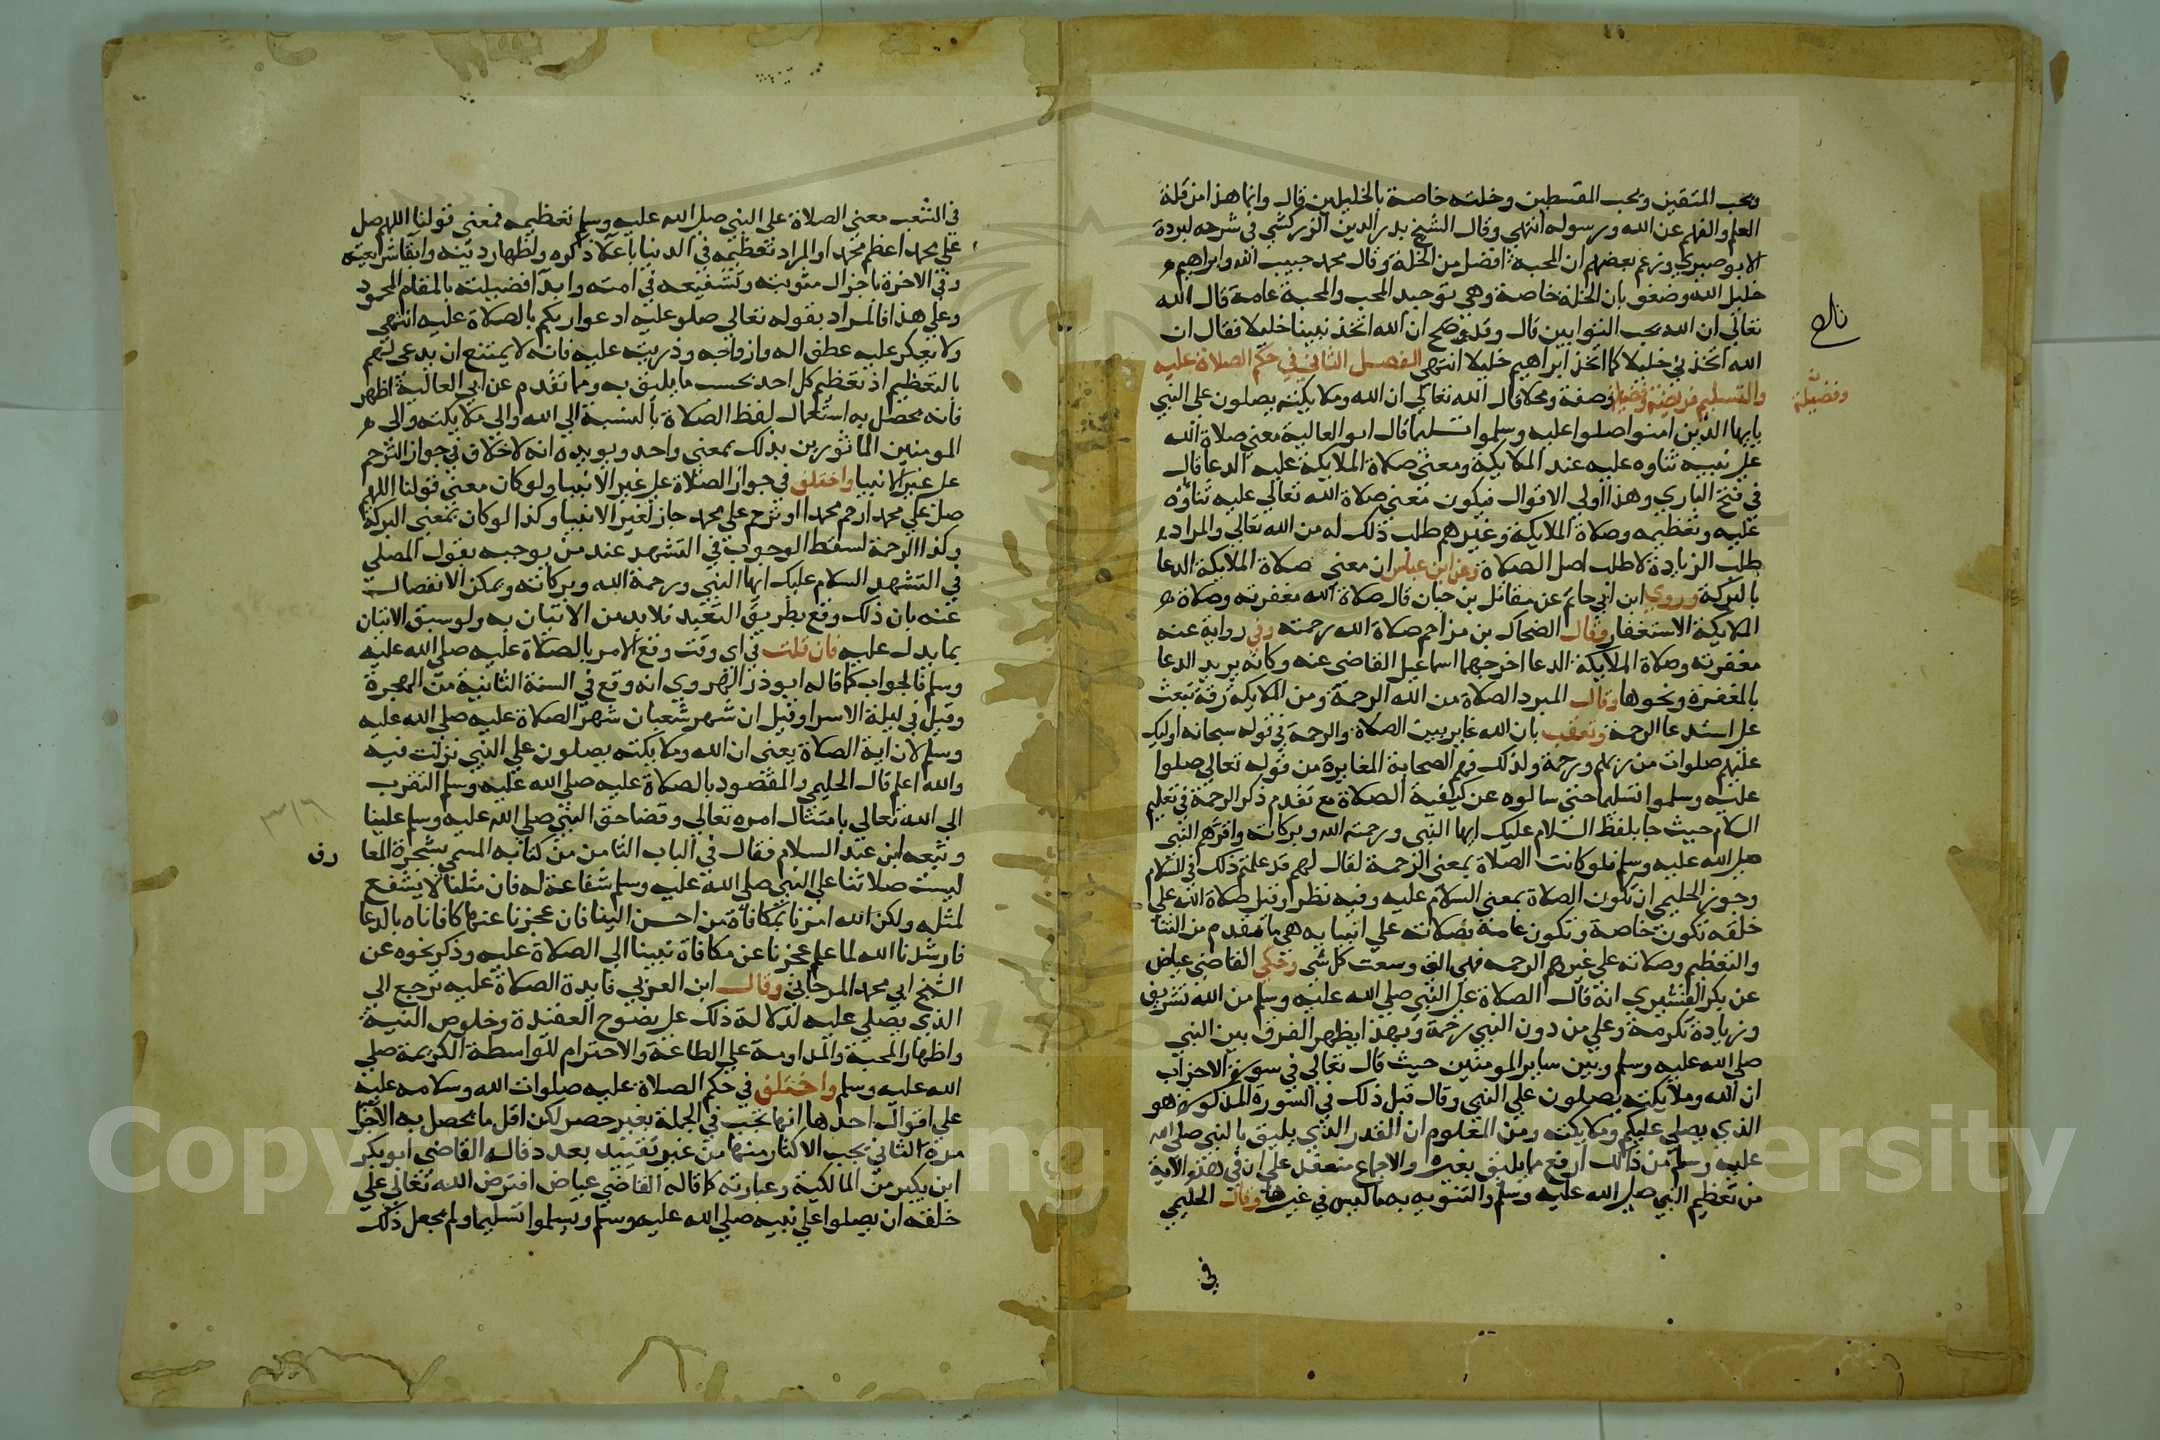 ويحب المتقين ويحب المقسطين وخلته خاصة بالخليلين قال وانما هذا من قلة
العلم والفهم عن الله ورسوله انتهي وقال الشيخ بدر الدين الزركشي في شرحه لبردة
الابوصيري وزعم بعضهم ان المحبة افضل من الخلة وقال محمد حبيب الله وابراهيم
خليل الله وضعف بان الخلة خاصة وهي توحيد المحب والمحبة عامة قال الله
تعالي ان الله يحب التوابين قال وقد صح ان الله اتخذ نبينا خليلا فقال ان
الله اتخذني خليلا كما اتخذ ابراهيم خليلا انتهي الفصل الثاني في حكم الصلاة عليه
والتسليم فريضة وفضيلة وصفة ومحلا قال الله تعالي ان الله وملايكته يصلون علي النبي
وفضيلة
يايها الذين امنوا صلوا عليه وسلموا تسليما قال ابو العالية معني صلاة الله
علي نبيه ثناوه عليه عند الملايكة ومعني صلاة الملايكة عليه الدعا قال
في فتح الباري وهذا اولي الاقوال فيكون معني صلاة الله تعالي عليه ثناؤه
عليه وتعظيمه وصلاة الملايكة وغيرهم طلب ذلك له من الله تعالي والمراد
طلب الزيادة لا طلب اصل الصلاة وعن ابن عباس ان معني صلاة الملايكة الدعا
بالبركة وروي ابن ابي حاتم عن مقاتل بن حيان قال صلاة الله مغفرته وصلاة
الملايكة الاستغفار وقال الضحاك بن مزاحم صلاة الله رحمته وفي رواية عنه
مغفرته وصلاة الملايكة الدعا اخرجهما اسماعيل القاضي عنه وكانه يريد الدعا
بالمغفرة ونحوها وقال المبرد الصلاة من الله الرحمة ومن الملايكة رقة تبعث
علي استدعا الرحمة وتعقب بان الله غاير بين الصلاة والرحمة في قوله سبحانه اوليك
عليهم صلوات من ربهم ورحمة ولذلك فهم الصحابة المغايرة من قوله تعالي صلوا
عليه وسلموا تسليما حتي سالوه عن كيفية الصلاة مع تقدم ذكر الرحمة في تعليم
السلام حيث جا بلفظ السلام عليك ايها النبي ورحمة الله وبركاته واقرهم النبي
صلي الله عليه وسلم فلو كانت الصلاة بمعني الرحمة لقال لهم قد علمتم ذلك في السلام
وجوز الحليمي ان تكون الصلاة بمعني السلام عليه وفيه نظر وقيل صلاة الله علي
خلقه تكون خاصة وتكون عامة فصلاته علي انبيايه هي ما تقدم من الثنا
والتعظيم وصلاته علي غيرهم الرحمه فهي التي وسعت كل شي وحكي القاضي عياض
عن بكر القشيري انه قال الصلاة علي النبي صلي الله عليه وسلم من الله تشريف
وزيادة تكرمة وعلي من دون النبي رحمة وبهذا يظهر الفرق بين النبي
صلي الله عليه وسلم وبين ساير المومنين حيث قال تعالي في سورة الاحزاب
ان الله وملايكته يصلون علي النبي وقال قبل ذلك في السورة المذكورة هو
الذي يصلي عليكم وملايكته ومن المعلوم ان القدر الذي يليق بالنبي صلي الله
عليه وسلم من ذلك ارفع مما يليق بغيره والاجماع منعقد علي ان في هذه الاية
من تعظيم النبي صلي الله عليه وسلم والتنويه به ما ليس في غيرها وقال الحليمي
في
في الشعب معني الصلاة علي النبي صلي الله عليه وسلم تعظيمه فمعني قولنا اللهم صل
علي محمد اعظم محمدا والمراد تعظيمه في الدنيا باعلا ذكره واظهار دينه وابقا شرايعته
وفي الاخرة باجزال مثوبته وتشفيعه في امته وابدا فضيلته بالمقام المحمود
وعلي هذا فالمراد بقوله تعالي صلو عليه ادعوا ربكم بالصلاة عليه انتهي
ولا يعكر عليه عطف اله وازواجه وذريته عليه فانه لا يمتنع ان يدعي لهم
بالتعظيم اذ تعظيم كل احد بحسب ما يليق به وما تقدم عن ابي العالية اظهر
فانه يحصل به استعمال لفظ الصلاة بالنسبة الي الله والي ملايكته والي
المومنين المامورين بذلك بمعني واحد ويويده انه لا خلاف في جواز الترحم
علي غير الانبيا واختلف في جواز الصلاة علي غير الانبيا ولو كان معني قولنا اللهم
صل علي محمد ارحم محمدا او ترحم علي محمد جاز لغير الانبيا وكذا لو كان بمعني البركة
وكذا الرحمة لسقط الوجوب في التشهد عند من يوجبه بقول المصلي
في التشهد السلام عليك ايها النبي ورحمة الله وبركاته ويمكن الانفصال
عنه بان ذلك وقع بطريق التعبد فلابد من الاتيان به ولو سبق الاتيان
بما يدل عليه فان قلت في اي وقت وقع الامر بالصلاة عليه صلي الله عليه
وسلم فالجواب كما قاله ابو ذر الهروي انه وقع في السنة الثانية من الهجرة
وقيل في ليلة الاسرا وقيل ان شهر شعبان شهر الصلاة عليه صلي الله عليه
وسلم لان اية الصلاة يعني ان الله وملايكته يصلون علي النبي نزلت فيه
والله اعلم قال الحليمي والمقصود بالصلاة عليه صلي الله عليه وسلم التقرب
الي الله تعالي بامتثال امره تعالي وقضا حق النبي صلي الله عليه وسلم علينا
وتبعه ابن عبد السلام فقال في الباب الثامن من كتابه المسمي بشجرة المعا
رف
ليست صلاتنا علي النبي صلي الله عليه وسلم شفاعة له فان مثلنا لا يشفع
لمثله ولكن الله امرنا بمكافاة من احسن الينا فان عجزنا عنها كافاناه بالدعا
فارشدنا الله لما علم عجزنا عن مكافاة نبينا الي الصلاة عليه وذكر نحوه عن
الشيخ ابي محمد المرجاني وقال ابن العربي فايدة الصلاة عليه ترجع الي
الذي يصلي عليه لدلالة ذلك علي نصوح العقيدة وخلوص النية
واظهار المحبة والمداومة علي الطاعة والاحترام للواسطة الكريمة صلي
الله عليه وسلم واختلف في حكم الصلاة عليه صلوات الله وسلامه عليه
علي اقوال احدها انها تجب في الجملة بغير حصر لكن اقل ما يحصل به الاجزا
مرة الثاني يجب الاكثار منها من غير تقييد بعدد قاله القاضي ابو بكر
ابن بكير من المالكية وعبارته كما قاله القاضي عياض افترض الله تعالي علي
خلقه ان يصلوا علي نبيه صلي الله عليه وسلم ويسلموا تسليما ولم يجعل ذلك